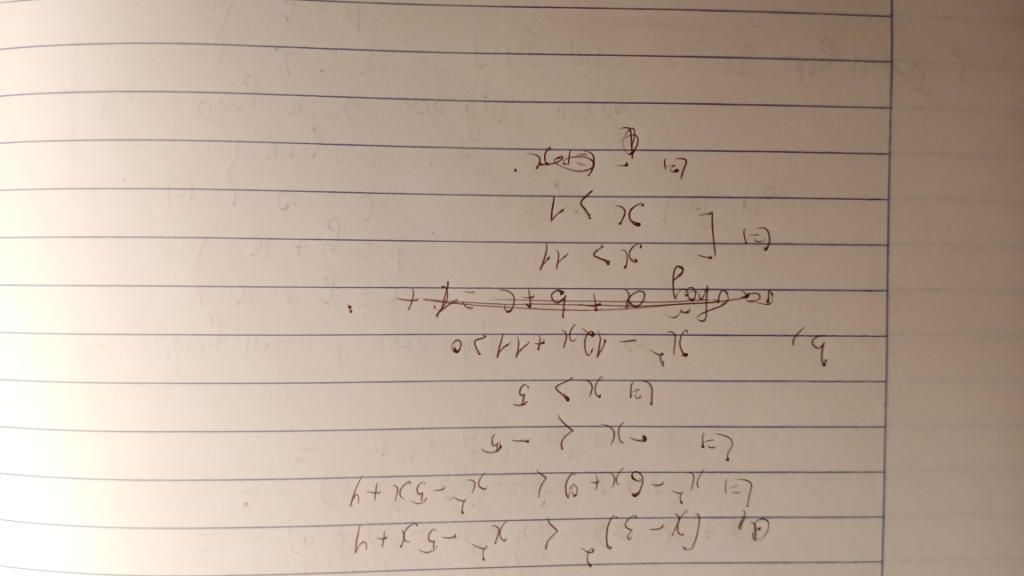 a, (x-3)² < x² - 5x + 4
<=> x² - 6x + 9 < x² - 5x + 4
<=> -x < -5
<=> x > 5
b, x² - 12x + 11 > 0
a + b + c =
<=> [ x > 11
x > 1
<=>